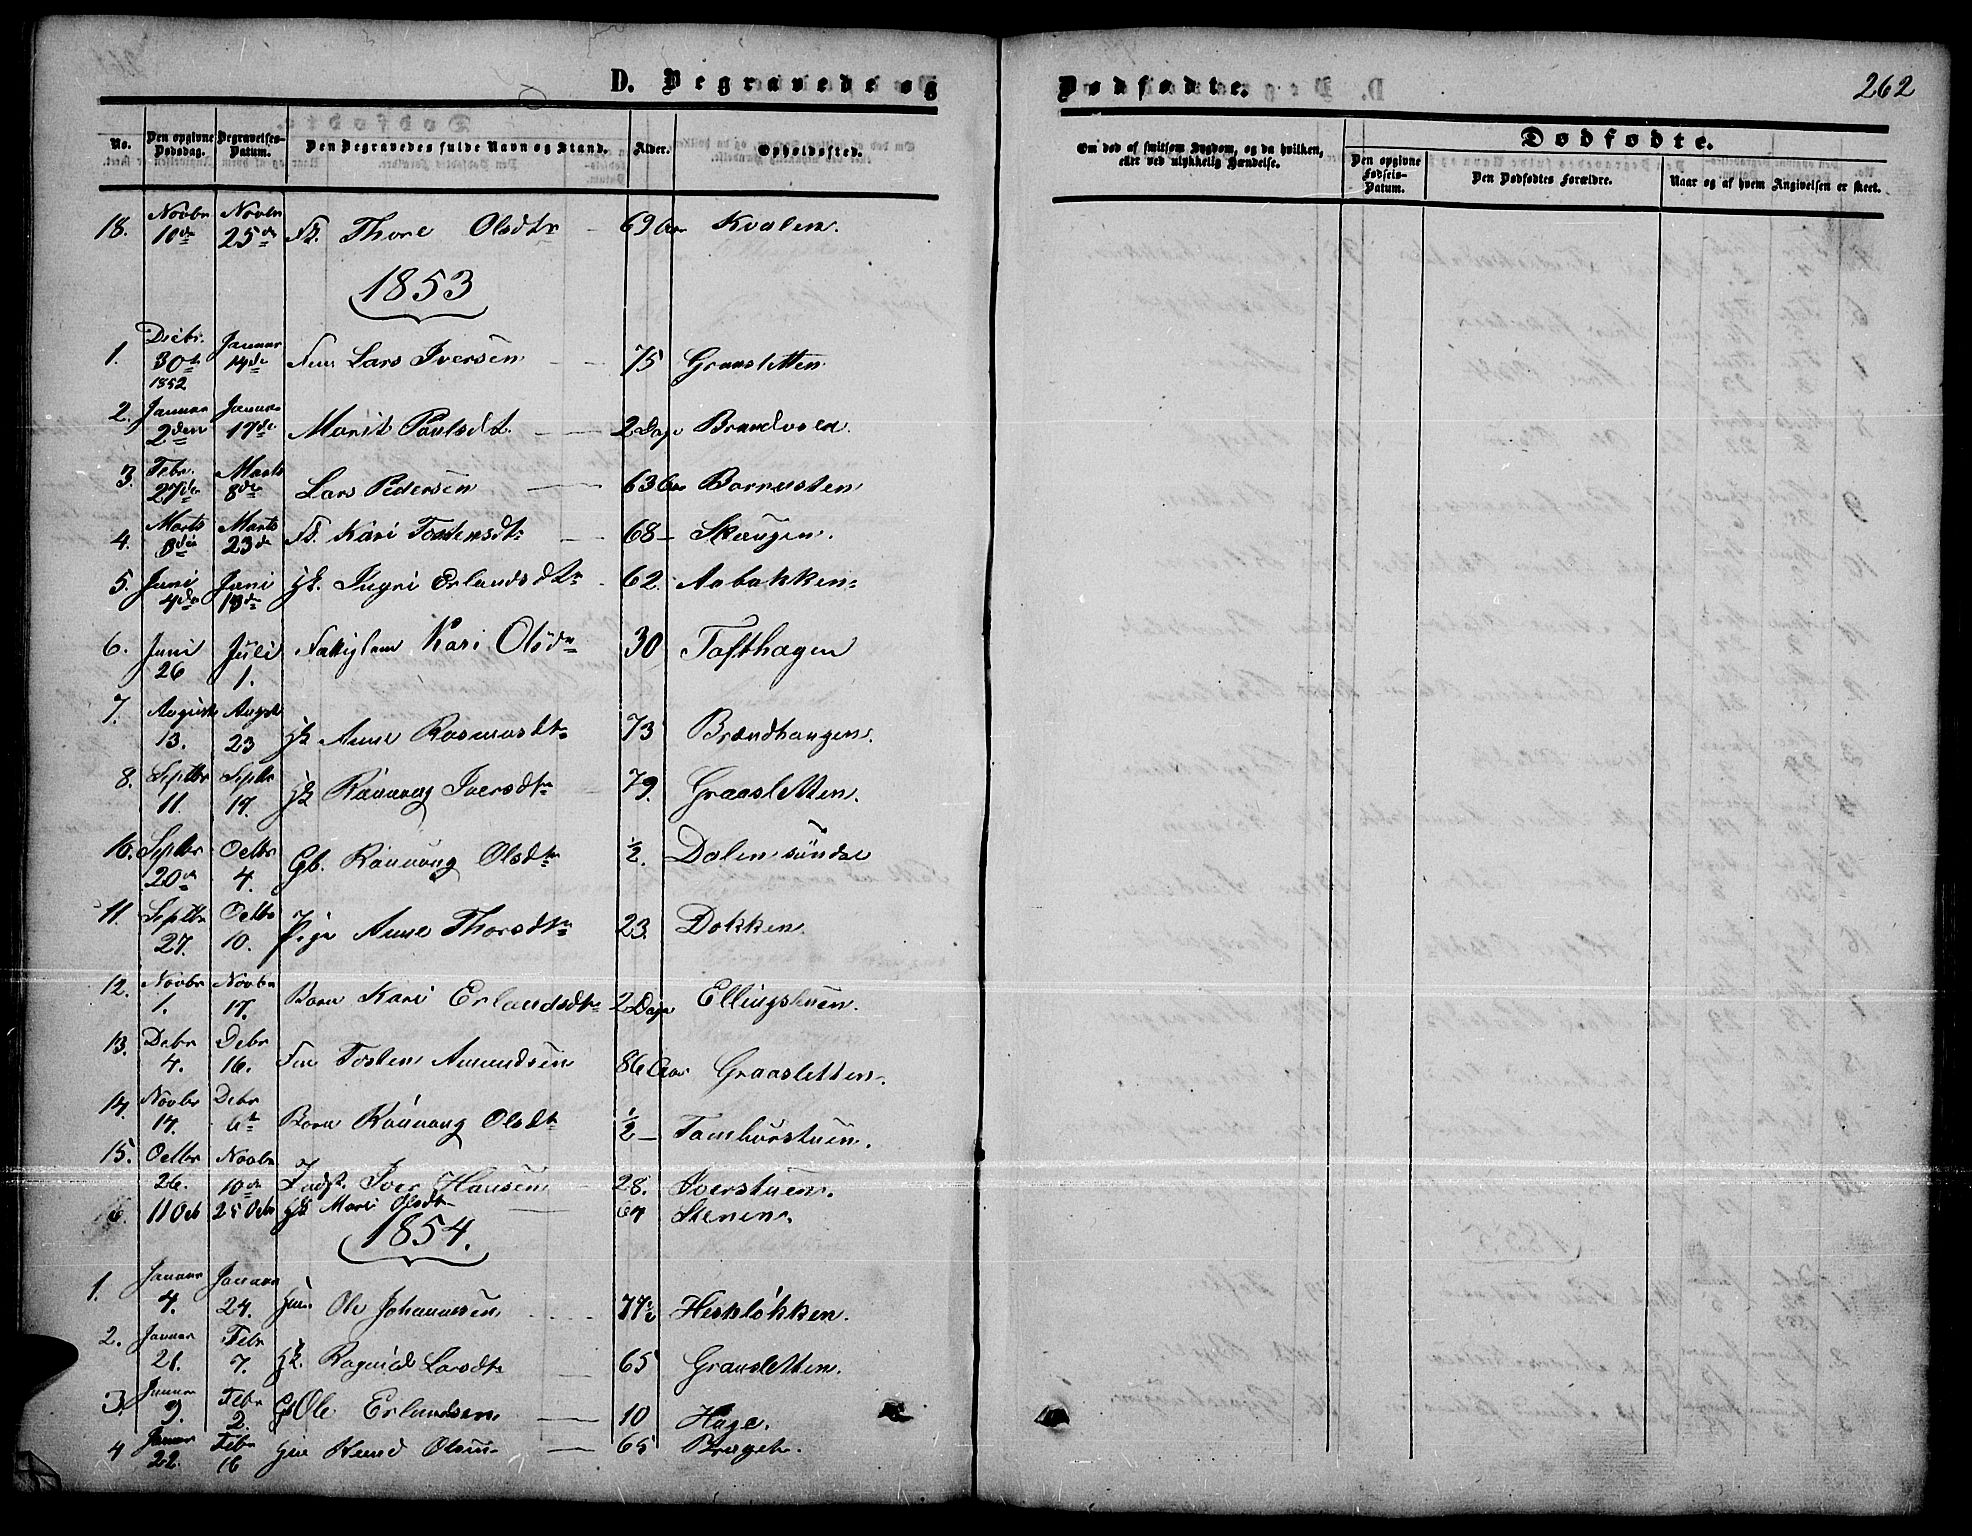 D. Begravede og
Dødfødte.
262
No.
Den opgivne Dødsdag.
Begravelses-Datum.
Den Begravedes fulde Navn og Stand.
Alder.
Opholdssted.
Om død af smitsom Sygdom, og da hvilken, eller ved ulykkelig Hændelse.
Dødfødte.
Den opgivne Fødsels-Datum.
Den Dødfødtes Forældre.
Naar og af hvem Angivelsen er skeet.
18. Novbr 10de Novbr 25de Fk. Thore Olsdtr 69 Aar Kvalen.
1853
1. Decbr. 30te 1852 Januar 14de Lars Iversen 75 Graasletten
2. Januar 2den Januar 17de Marit Paulsdtr 2 Dage Brandvolen.
3. Febr. 27de Marts 8de Lars Pedersen 63 Aar Bornesten
4. Marts 8de Marts 23de Fk. Kari Tostensdtr 68 Skougen.
5. Juni 4de Juni 13de Hk. Ingri Erlandsdtr 62. Aabakken
6. Juni 26 Juli 1. Fattiglem Kari Olsdr 30 Tofthagen
7. August 13. Augst 23 Hk Anne Rasmusdtr 73 Brændhaugen.
8. Septbr 11. Septbr 19. Hk Rannung Iversdtr 79. Graasletten.
10. Septbr 20de Octbr 4. Gb. Rannung Olsdtr ½. Dalen søndre
11. Septbr 27. Octbr 10. Pige Anne Thorsdtr 23. Dokken.
12. Novbr 1. Novbr 17. Barn Kari Erlandsdtr 2 Dage Ellingstuen.
13. Debr 4. Debr 16. Tosten Amundsen 86 Aar Graasletten.
14. Novbr 14. Debr 6te Barn Rannung Olsdtr ½ Tomborstuen.
15. Octbr 26. Novbr 10de Indst. Iver Hansen 28. Iverstuen.
11 Oct 25 Octr Hk Mari Olsdtr 64 Stenen.
1854.
1. Januar 4. Januar 24. Ole Johannesen 77½ Heskløkken.
2. Januar 21. Febr 7. Hk. Ragnild Larsdtr 65 Graasletten.
3. Januar 9. Febr 2. G Ole Erlandsen 10 Hage.
4 Januar 22. Febr 16 Knud Olsen 65